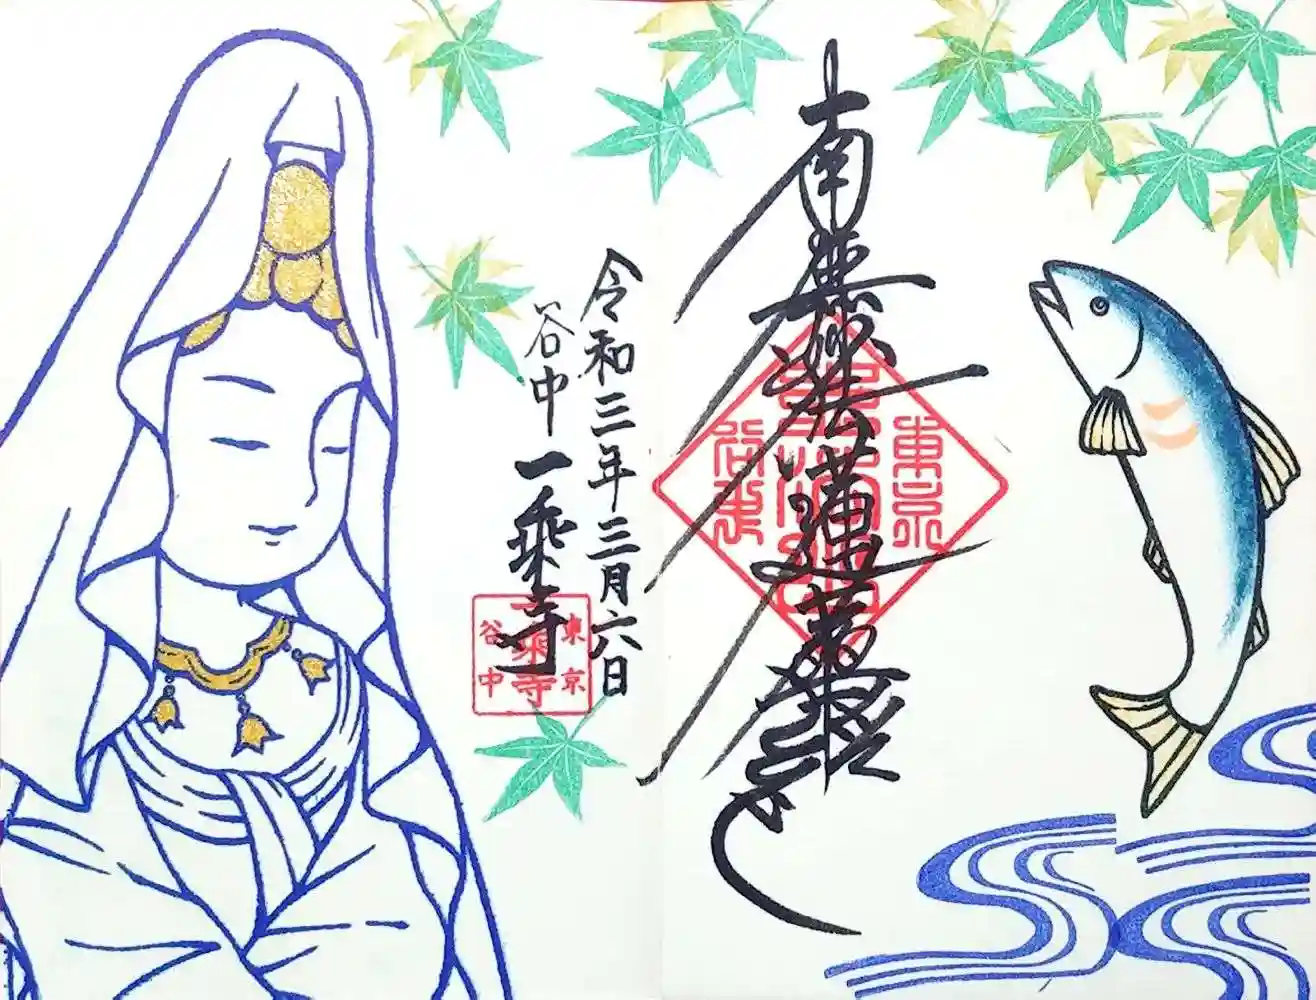 南無妙法蓮華経
令和三年三月六日
谷中
一乗寺
東京
谷中